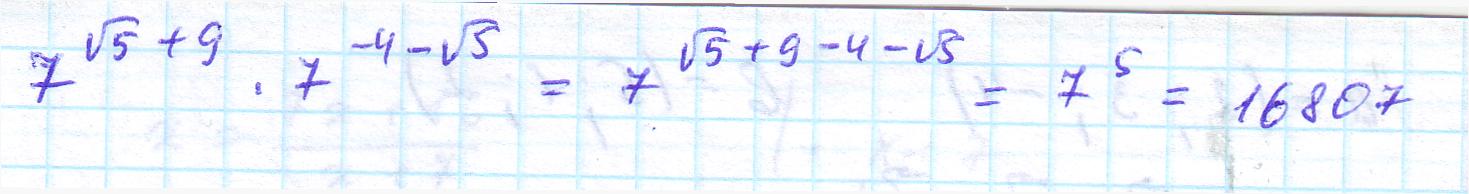 7^{√5 + 9} · 7^{-4-√5} = 7^{√5 + 9 - 4 - √5} = 7^5 = 16807